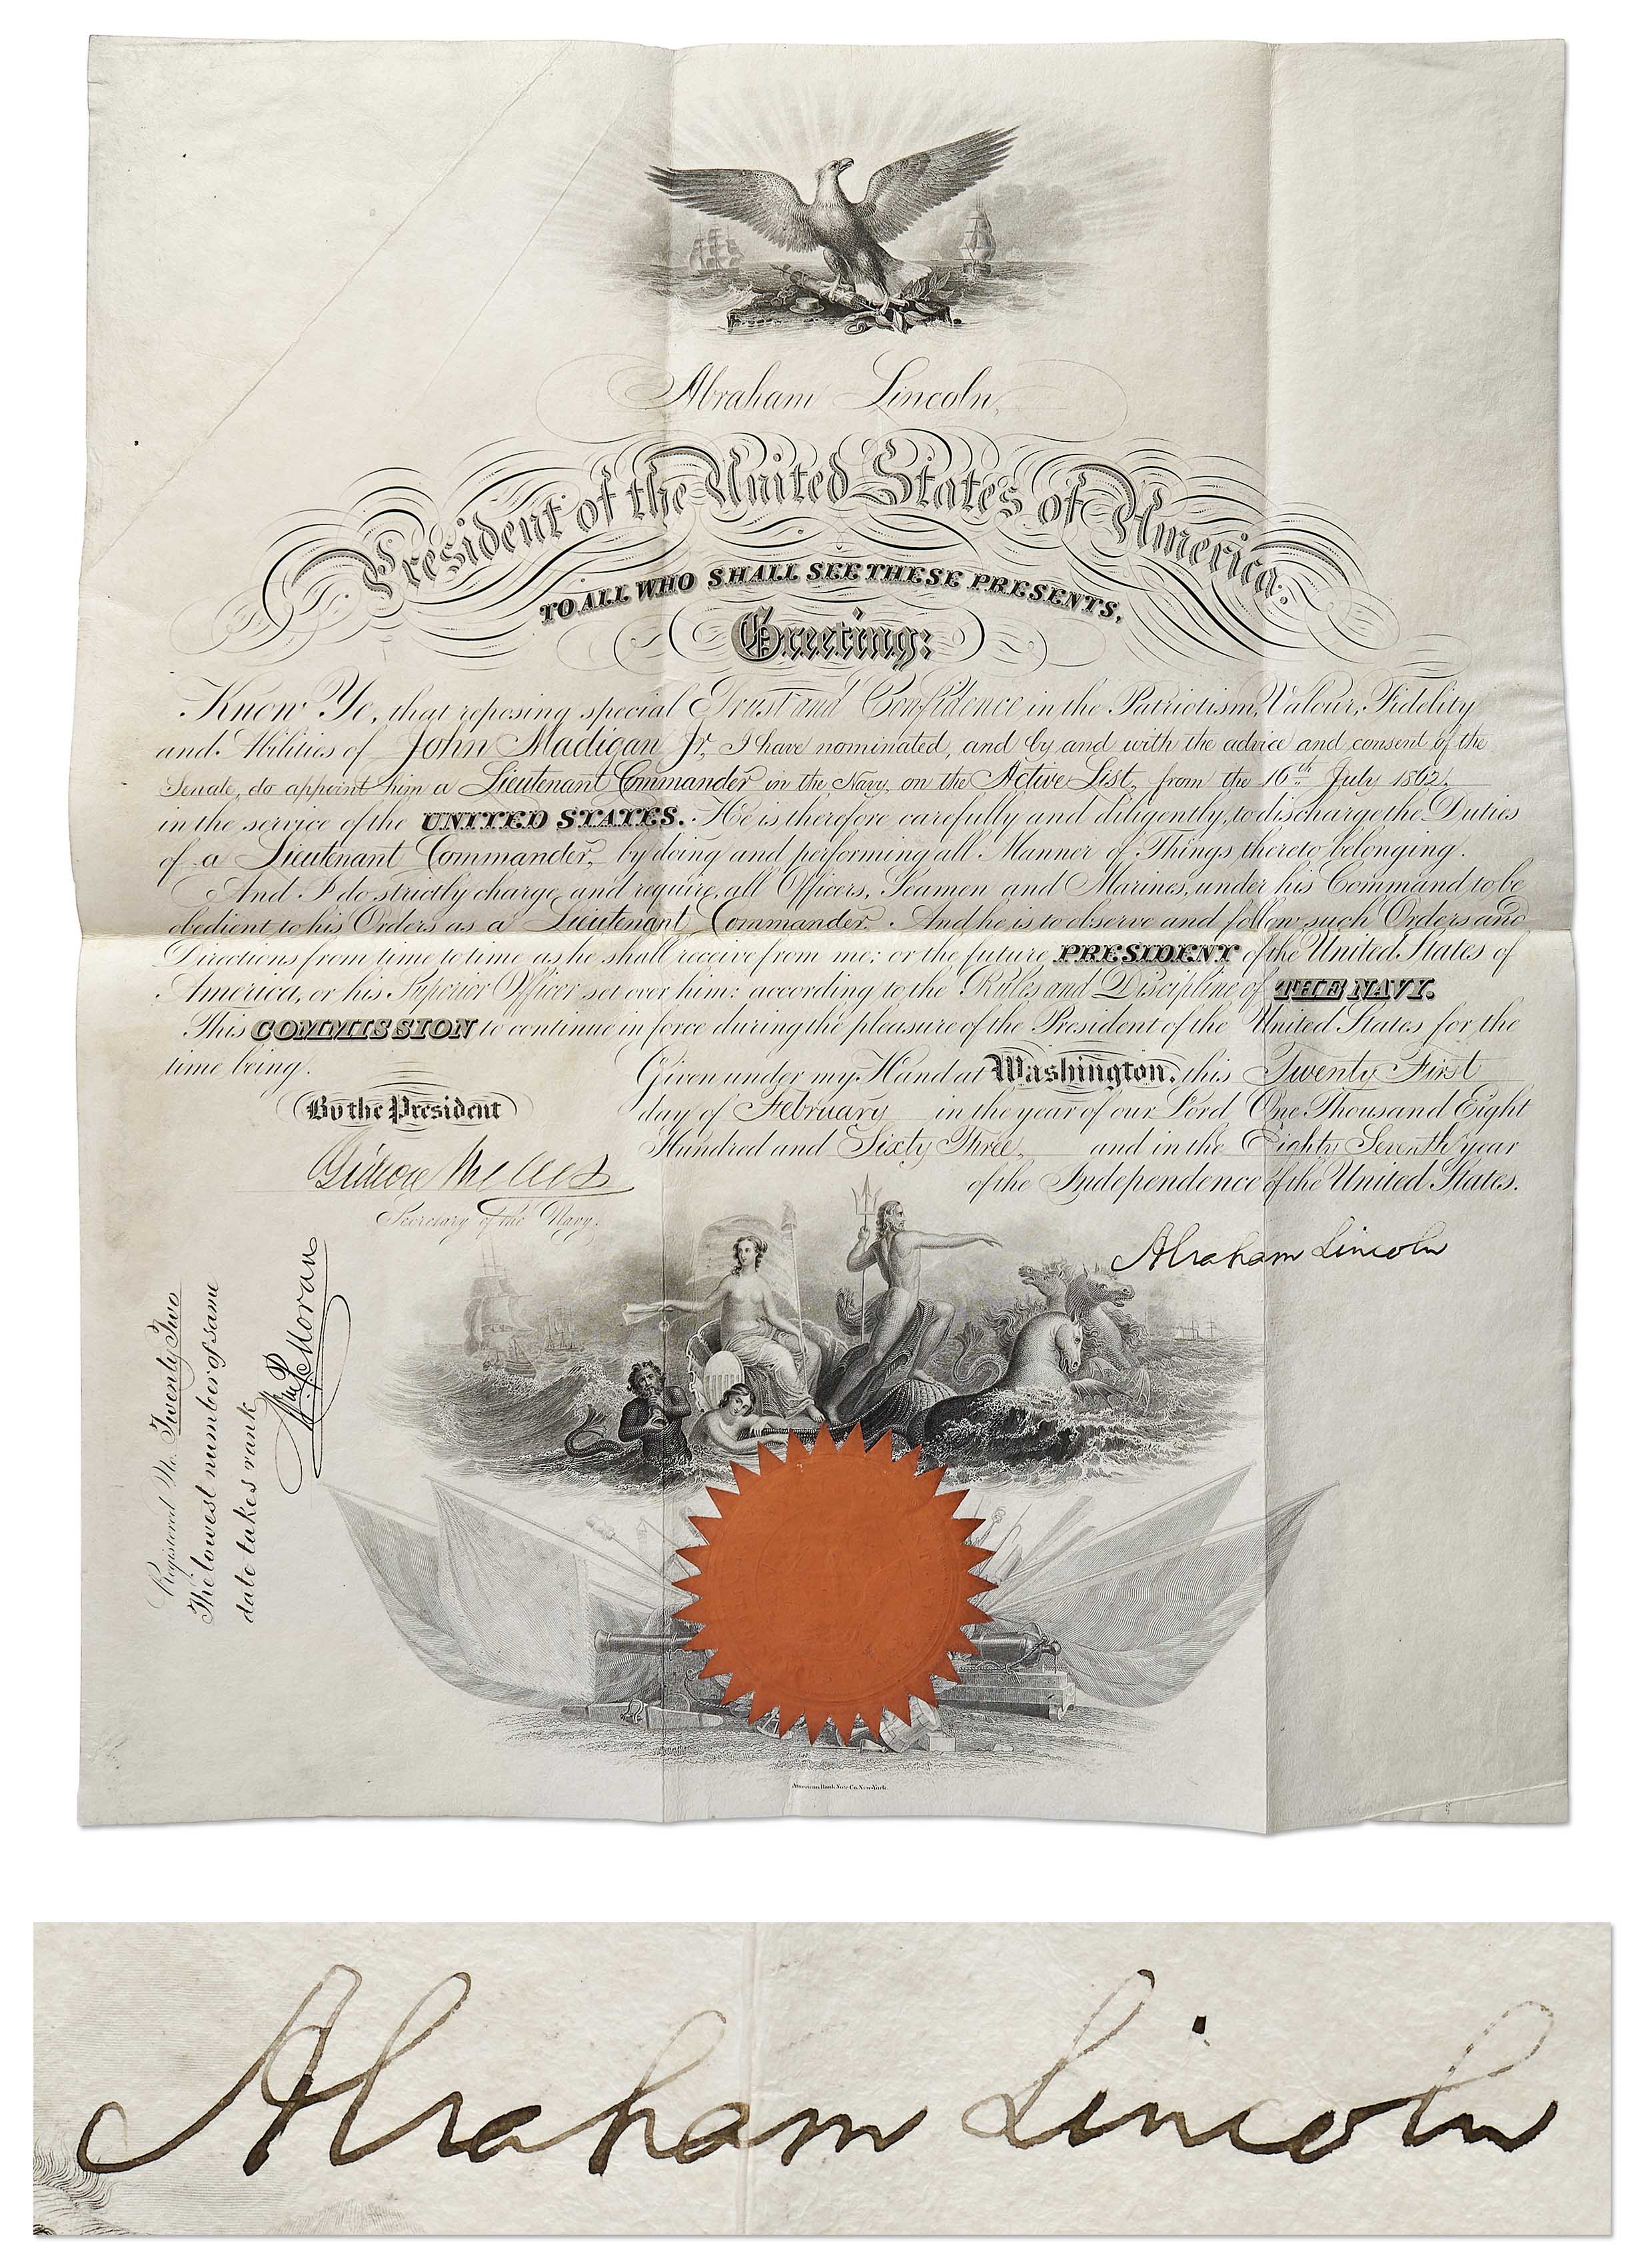 Abraham Lincoln,
President of the United States of America.
TO ALL WHO SHALL SEE THESE PRESENTS,
Greeting:
Know Ye, that reposing special Trust and Confidence in the Patriotism, Valour, Fidelity
and Abilities of John Madigan Jr, I have nominated, and by and with the advice and consent of the
Senate, do appoint him a Lieutenant Commander in the Navy, on the Active List, from the 16th July 1862.
in the service of the UNITED STATES. He is therefore carefully and diligently, to discharge the Duties
of a Lieutenant Commander, by doing and performing all Manner of Things thereto belonging.
And I do strictly charge, and require, all Officers, Seamen and Marines, under his Command to be
obedient to his Orders as a Lieutenant Commander. And he is to observe and follow such Orders and
Directions from time to time as he shall receive from me; or the future PRESIDENT of the United States of
America, or his Superior Officer set over him: according to the Rules and Discipline of THE NAVY.
This COMMISSION to continue in force during the pleasure of the President of the United States for the
time being.
Given under my Hand at Washington, this Twenty First
day of February in the year of our Lord One Thousand Eight
Hundred and Sixty Three, and in the Eighty Seventh year
of the Independence of the United States.
By the President
Gideon Welles
Secretary of the Navy.
Abraham Lincoln
Registered No. Twenty Two
The lowest number of same
date takes rank
Wm P Moran
American Bank Note Co. New-York.
Abraham Lincoln